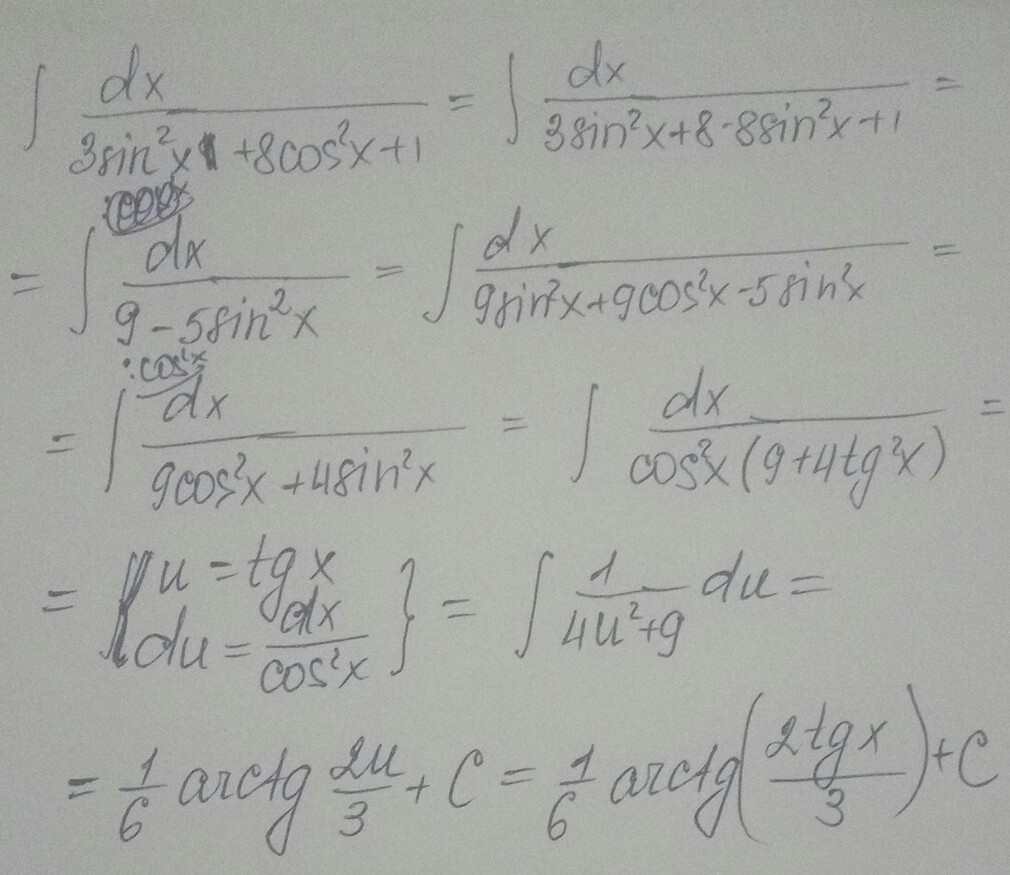 ∫ dx / (3sin²x + 8cos²x + 1) = ∫ dx / (3sin²x + 8 - 8sin²x + 1) =
= ∫ dx / (9 - 5sin²x) = ∫ dx / (9sin²x + 9cos²x - 5sin²x) =
:cos²x
= ∫ dx / (9cos²x + 4sin²x) = ∫ dx / (cos²x (9 + 4tg²x)) =
= { u = tg x du = dx / cos²x } = ∫ 1 / (4u² + 9) du =
= 1/6 arctg 2u/3 + C = 1/6 arctg(2tg x / 3) + C